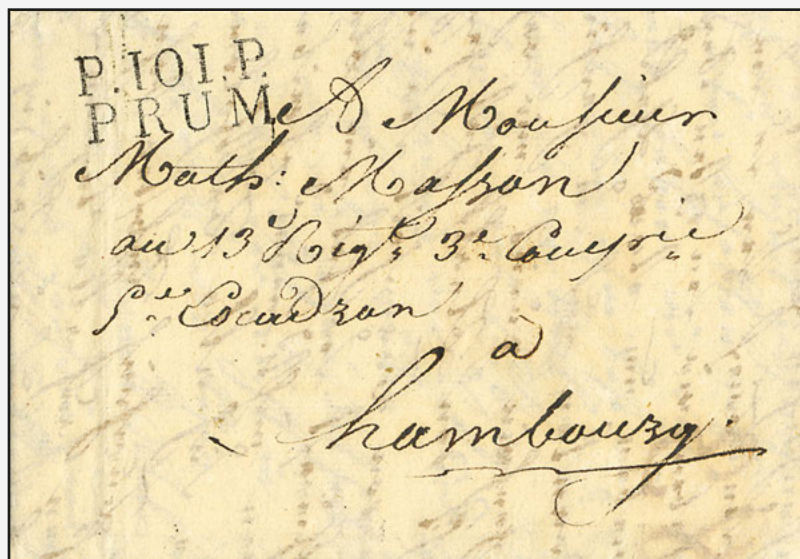 P.101.P.
PRUM
A Monsieur
Math: Masson
au 13e Régt 3e Compie
5e Escadron
à
hambourg